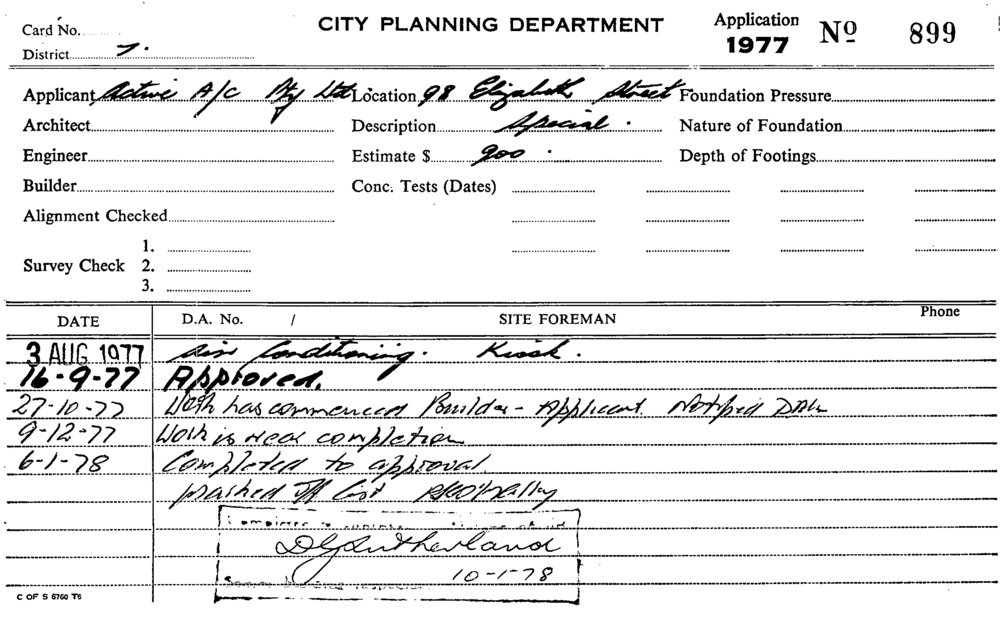 Card No.
CITY PLANNING DEPARTMENT
Application 1977 Nº 899
District 7.
Applicant Active A/C Pty Ltd Location 98 Elizabeth Street Foundation Pressure
Architect Description Special. Nature of Foundation
Engineer Estimate $ 900. Depth of Footings
Builder Conc. Tests (Dates)
Alignment Checked
1.
Survey Check 2.
3.
DATE D.A. No. / SITE FOREMAN Phone
3 AUG 1977 Air Conditioning. Kiosk.
16-9-77 Approved.
27-10-77 Work has commenced Builder - Applicant. Notified
9-12-77 Work is near completion
6-1-78 Completed to approval
off list
DG Sutherland
10-1-78
C OF S 6760 T6